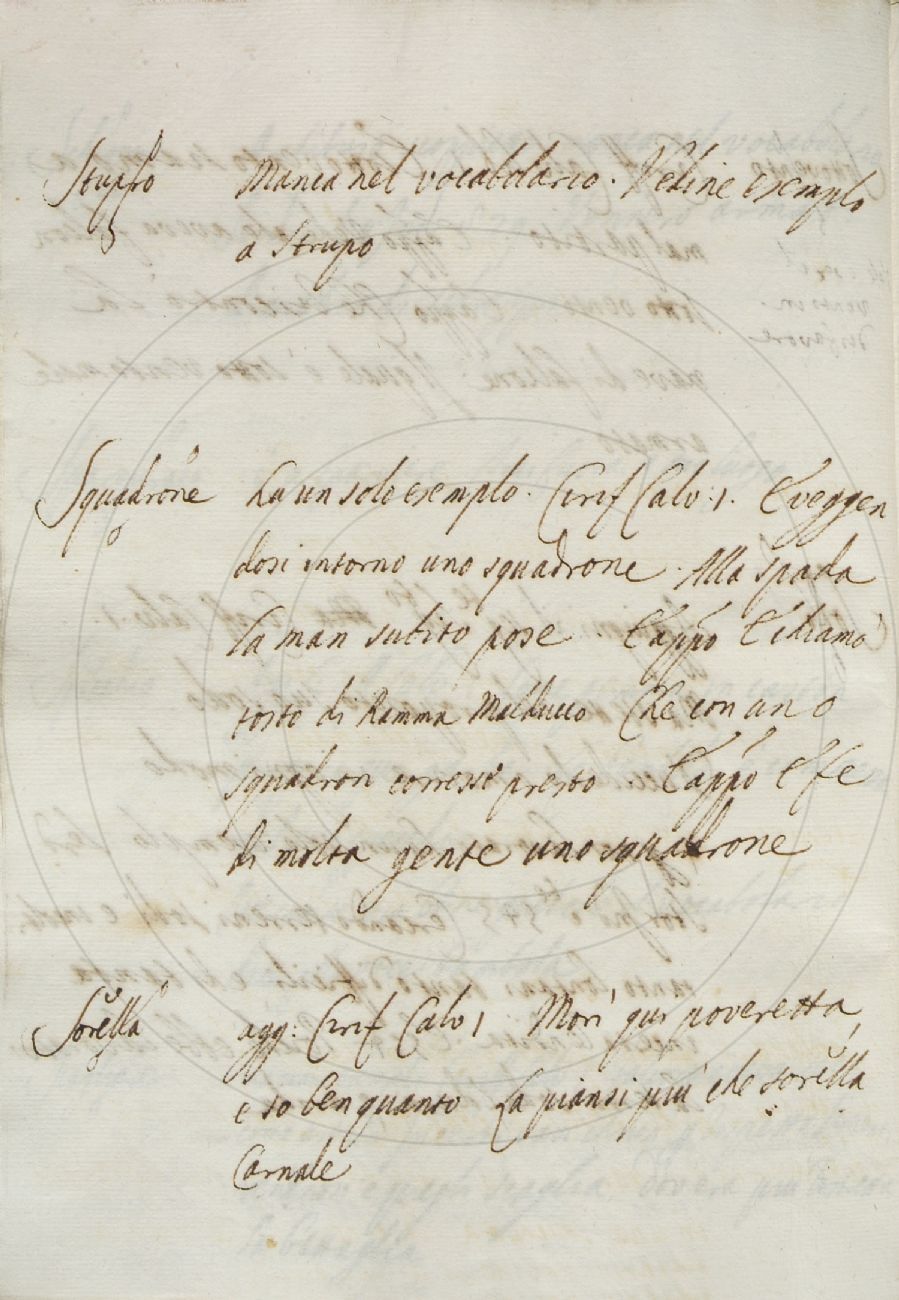 Stupro Manca nel vocabolario. Vedine esemplo
a Strupo
Squadrone ha un solo esemplo. Cirif Calv: 1. E veggen
dosi intorno uno squadrone. Alla spada
la man subito pose. E appo E chiamò
tosto di Ramma Malducco Che con un
squadron corresse presto. E appo E fe
di molta gente uno squadrone
Sorella agg: Cirif Calv 1 Morì qui poveretta,
e so ben quanto La piansi più che sorella
Carnale